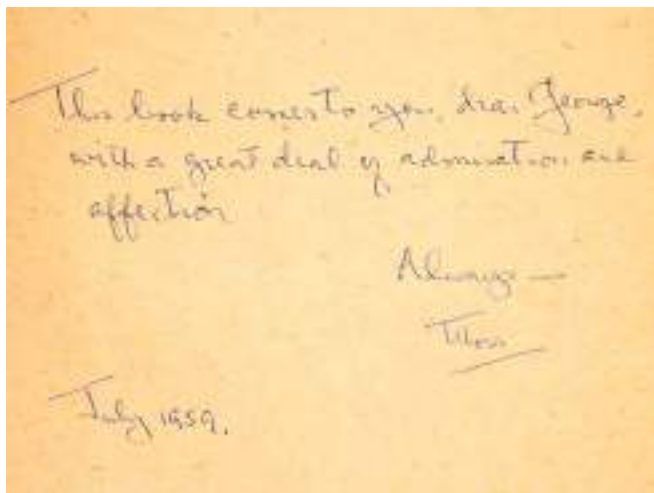 This book comes to you, dear George,
with a great deal of admiration and
affection
Always —
July 1959.